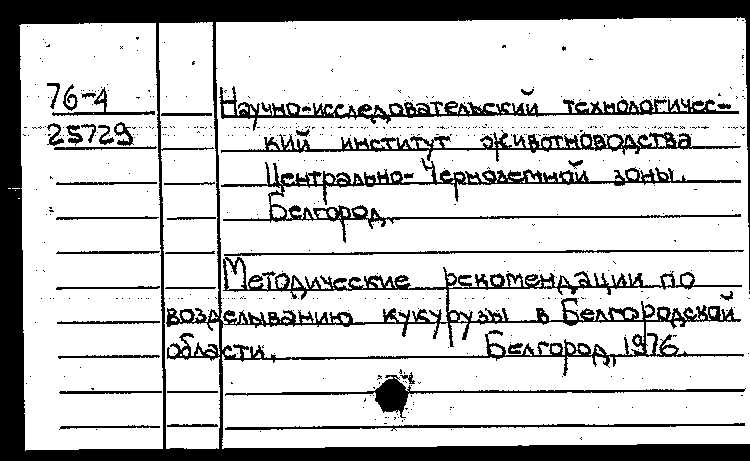 76-4
25729
Научно-исследовательский технологичес-
кий институт животноводства
Центрально-Черноземной зоны.
Белгород.
Методические рекомендации по
возделыванию кукурузы в Белгородской
области. Белгород, 1976.